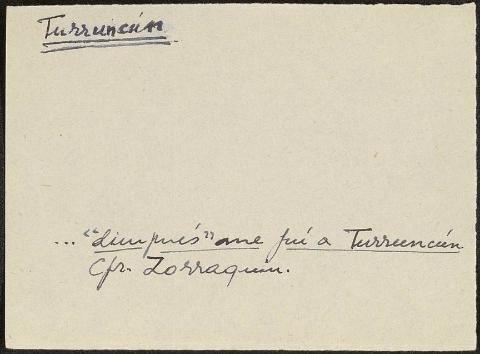 Turruncún
... "dimpués" me fuí a Turruncún
Cfr. Zorraquin.